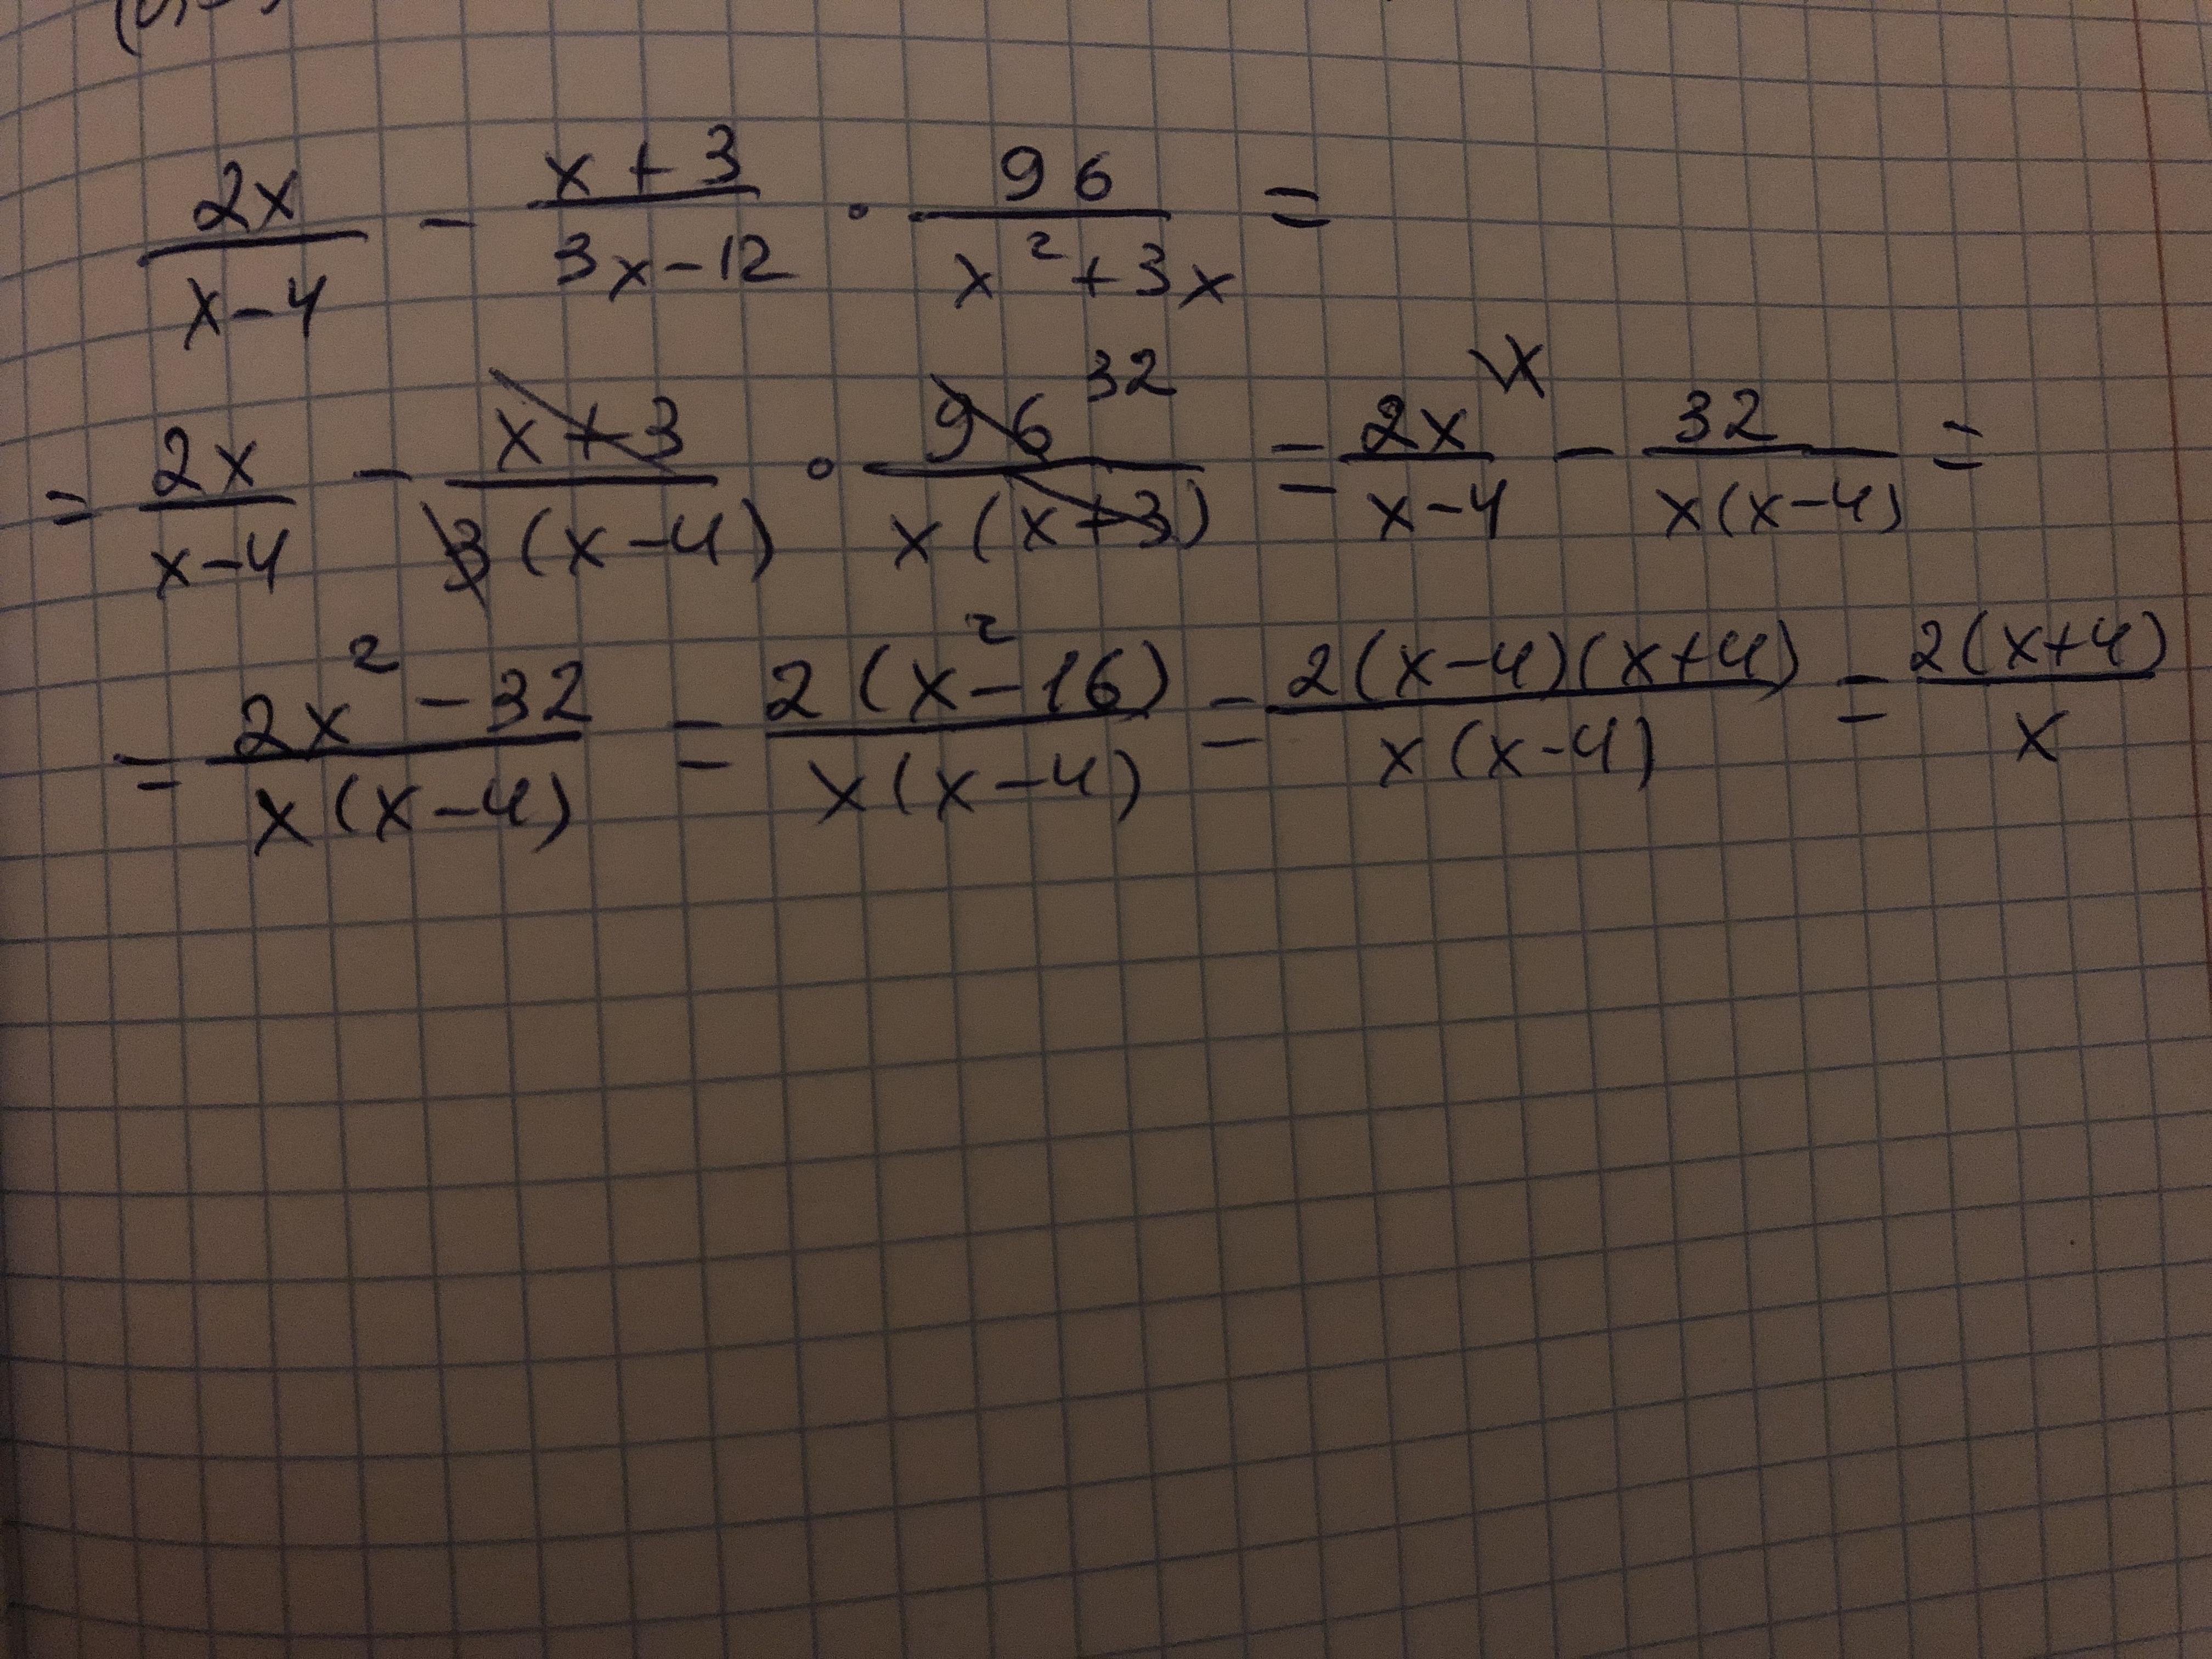 2x/(x-4) - (x+3)/(3x-12) · 96/(x²+3x) =
= 2x/(x-4) - (x+3)/(3(x-4)) · 96 32/(x(x+3)) = 2x \x/(x-4) - 32/(x(x-4)) =
= (2x²-32)/(x(x-4)) = 2(x²-16)/(x(x-4)) = 2(x-4)(x+4)/(x(x-4)) = 2(x+4)/x